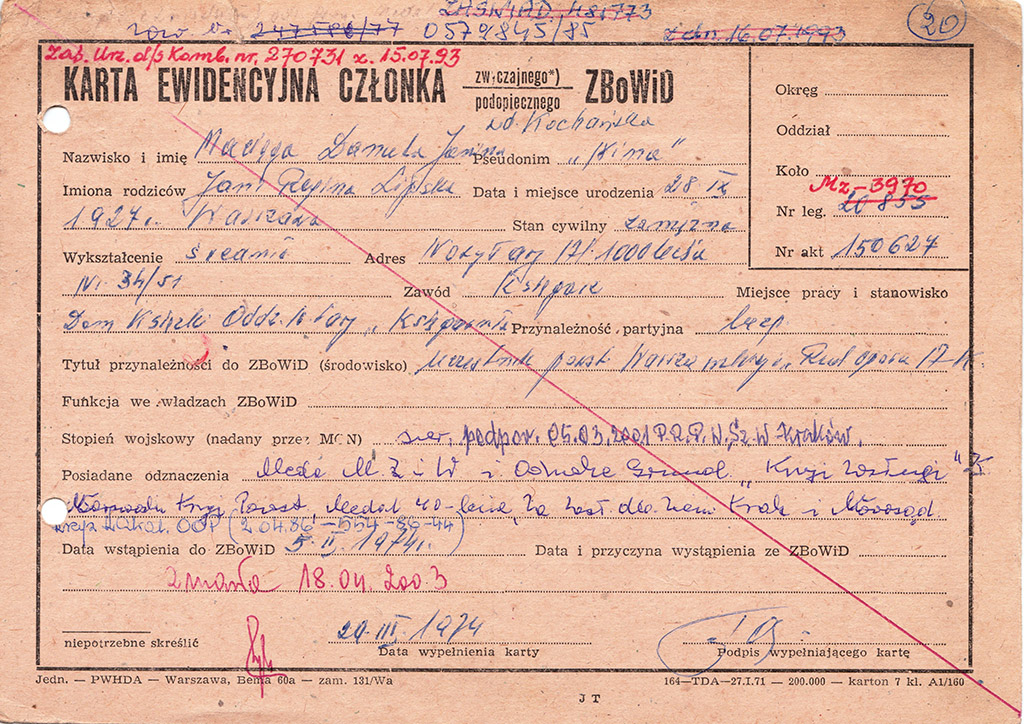 ZAŚWIAD. 481773
247586/77 0579845/85 z dn. 16.07.1993
20
Zaś. Urz. d/s Komb. nr. 270731 z. 15.07.93
KARTA EWIDENCYJNA CZŁONKA zwyczajnego*) podopiecznego ZBoWiD
Okręg
Oddział
Koło
Mz-3970
Nr leg. 20855
Nr akt 150627
zd. Kochańska
Nazwisko i imię Danuta Janina Pseudonim „Nina”
Imiona rodziców Jan Regina Lipska Data i miejsce urodzenia 28 IX
1927r. Warszawa Stan cywilny zamężna
Wykształcenie średnie Adres Nowy Targ 1000 lecia
Nr 34/51 Zawód Księgarz Miejsce pracy i stanowisko
Dom Książki Oddz. N. Targ „Księgarnia Przynależność partyjna bezp.
Tytuł przynależności do ZBoWiD (środowisko) uczestnik powst. Warszawskiego
Funkcja we władzach ZBoWiD
Stopień wojskowy (nadany przez MON) sier. podpor. 05.03.2001 P.R.P. W.Sz.W Kraków.
Posiadane odznaczenia Medal M. Z i W i Odznaka Grunwal. „Krzyż Zasługi”
Krzyż Powst. Medal 40-lecia, Za zasł. dla Ziemi Krak i Nowosąd.
krzyż OOP (2.04.86-554-86-44)
Data wstąpienia do ZBoWiD 5. II. 1974r. Data i przyczyna wystąpienia ze ZBoWiD
zmarła 18.04.2003
niepotrzebne skreślić
20. III. 1974
Data wypełnienia karty Podpis wypełniającego kartę
Jedn. — PWHDA — Warszawa, Bema 60a — zam. 131/Wa 164—TDA—27.I.71 — 200.000 — karton 7 kl. A1/160
J T